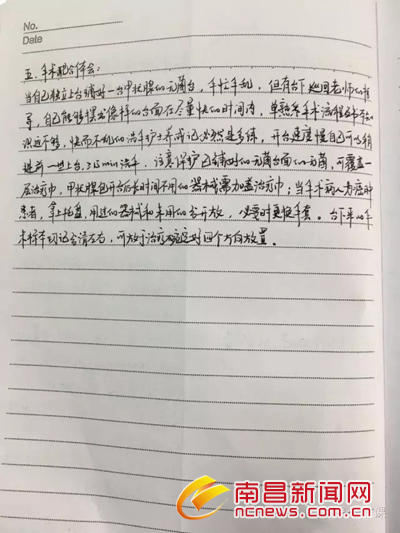 No.
Date
五.手术配合体会:
当自己独立上台铺好一台甲状腺的无菌台,手忙手乱,但有台下巡回老师的指
导,自己能够摆出像样的台面在尽量快的时间内,单熟悉手术流程
远远不够,快而不乱的洗手护士 必然是多练,开台速度慢自己可以稍
提前一些上台,≥15min洗手,注意保护已铺好的无菌台面的无菌,可覆盖一
层治疗巾,甲状腺包开台后长时间不用的器械需加盖治疗巾;当手术病人为癌肿
患者,拿上托盘,用过的器械和未用的分开放,必要时更换手套。台下 的手
术标本切记分清左右,可放于治疗碗 四个方向放置。
南昌新闻网
ncnews.com.cn
课